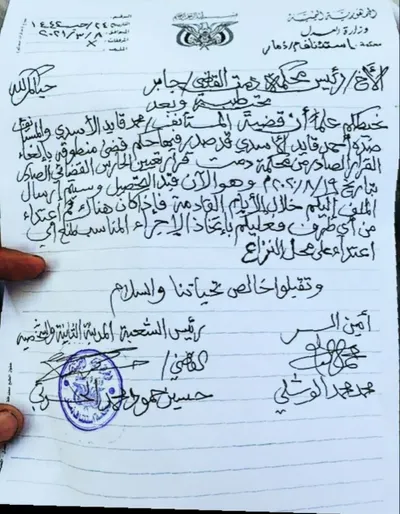 الجمهورية اليمنية
وزارة العدل
محكمة استئناف م/ذمار
التاريخ ٢٤/رجب/١٤٤٢هـ
الموافق ٨/٣/٢٠٢١م
المرفقات
الأخ/ رئيس محكمة دمت القاضي/ جابر حياكم الله
وبعد
نحيطكم علماً أن قضية المستأنف/ محمد قايد الأسدي والمستأنف
ضده أحمد قايد الأسدي قد صدر فيها حكم قضى منطوقه بإلغاء
القرار الصادر من محكمة دمت قرار تعيين الحارس القضائي الصادر
بتاريخ ١٩/٨/٢٠٢٠م وهو الآن قيد التحصيل وسيتم إرسال
الملف إليكم خلال الأيام القادمة فإذا كان هناك أي اعتداء
من أي طرف فعليكم باتخاذ الإجراء المناسب لمنع أي
اعتداء على محل النزاع
وتقبلوا خالص تحياتنا والسلام
أمين السر
رئيس الشعبة المدنية الثانية والشخصية
القاضي/
محمد محمد الوشلي
حسين حمود محمد